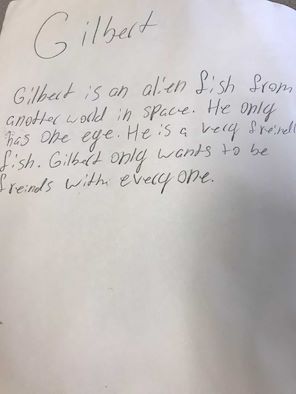 Gilbert
Gilbert is an alien fish from
another world in space. He only
has one eye. He is a very freindl
fish. Gilbert only wants to be
freinds with every one.